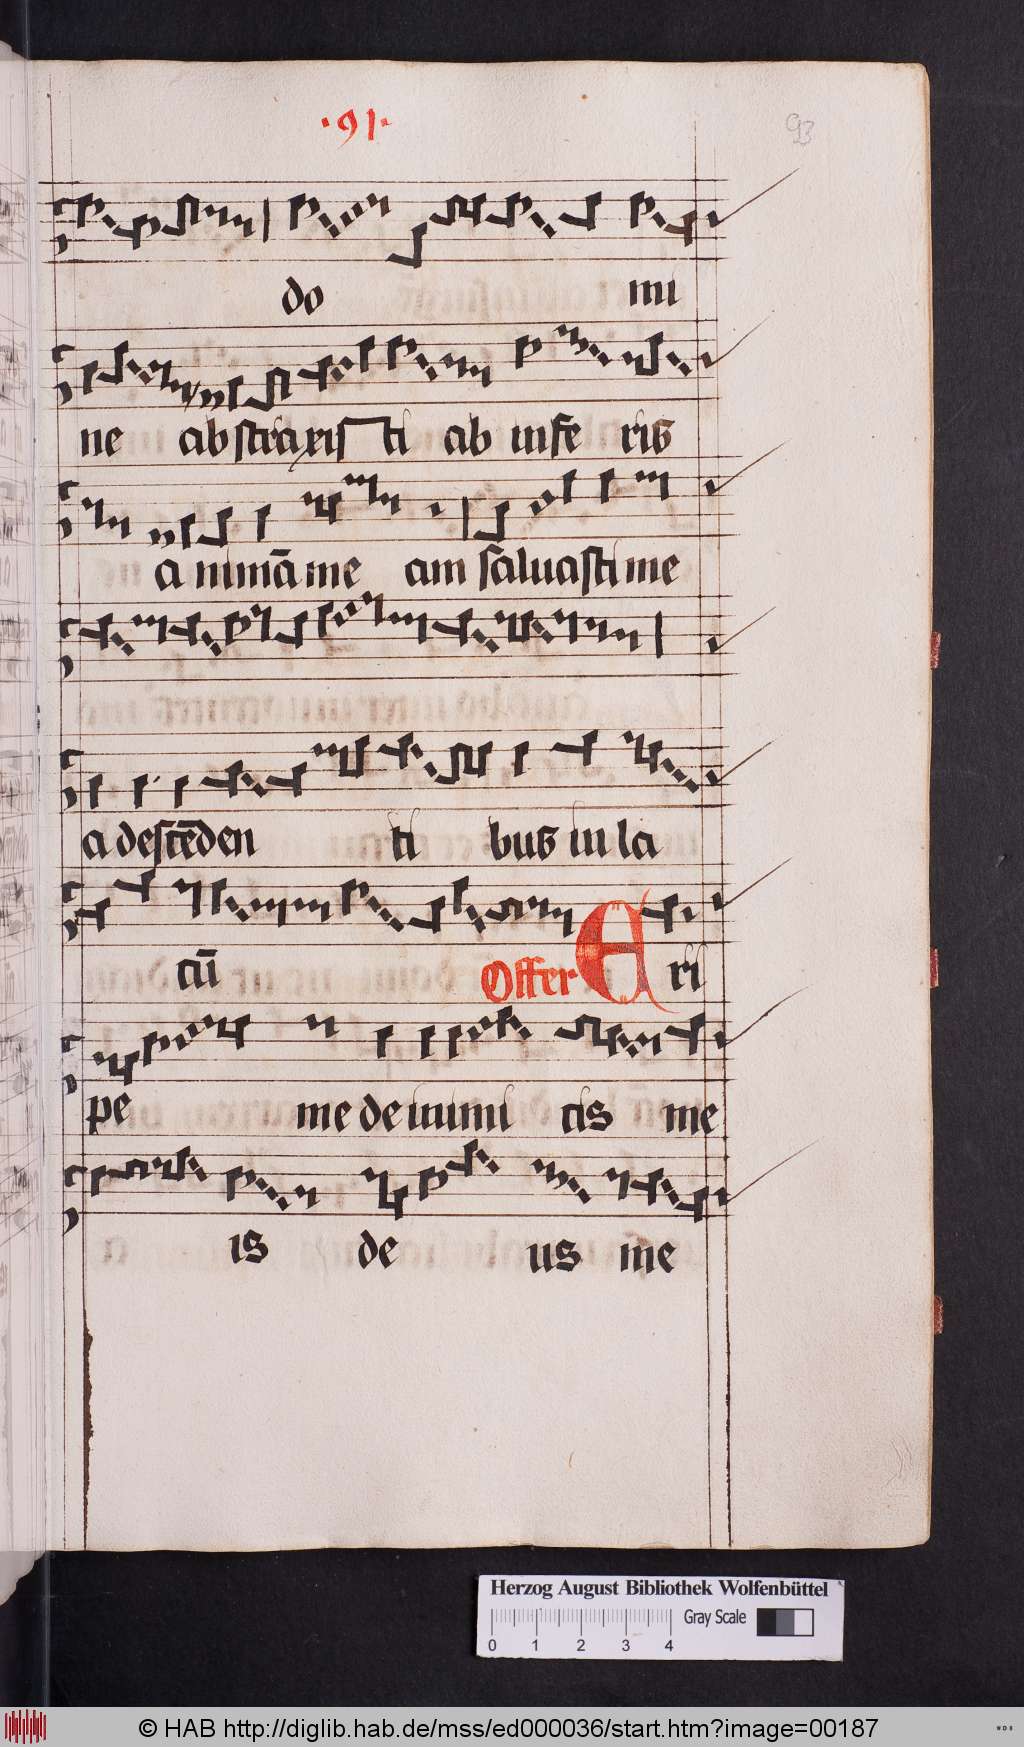 ·91·
93
do mi
ne abstraxisti ab infe ris
a nimā me am saluasti me
a descēden ti bus in la
cū Offer Eri
pe me de inimi cis me
is de us me
Herzog August Bibliothek Wolfenbüttel
Gray Scale
0 1 2 3 4
© HAB http://diglib.hab.de/mss/ed000036/start.htm?image=00187